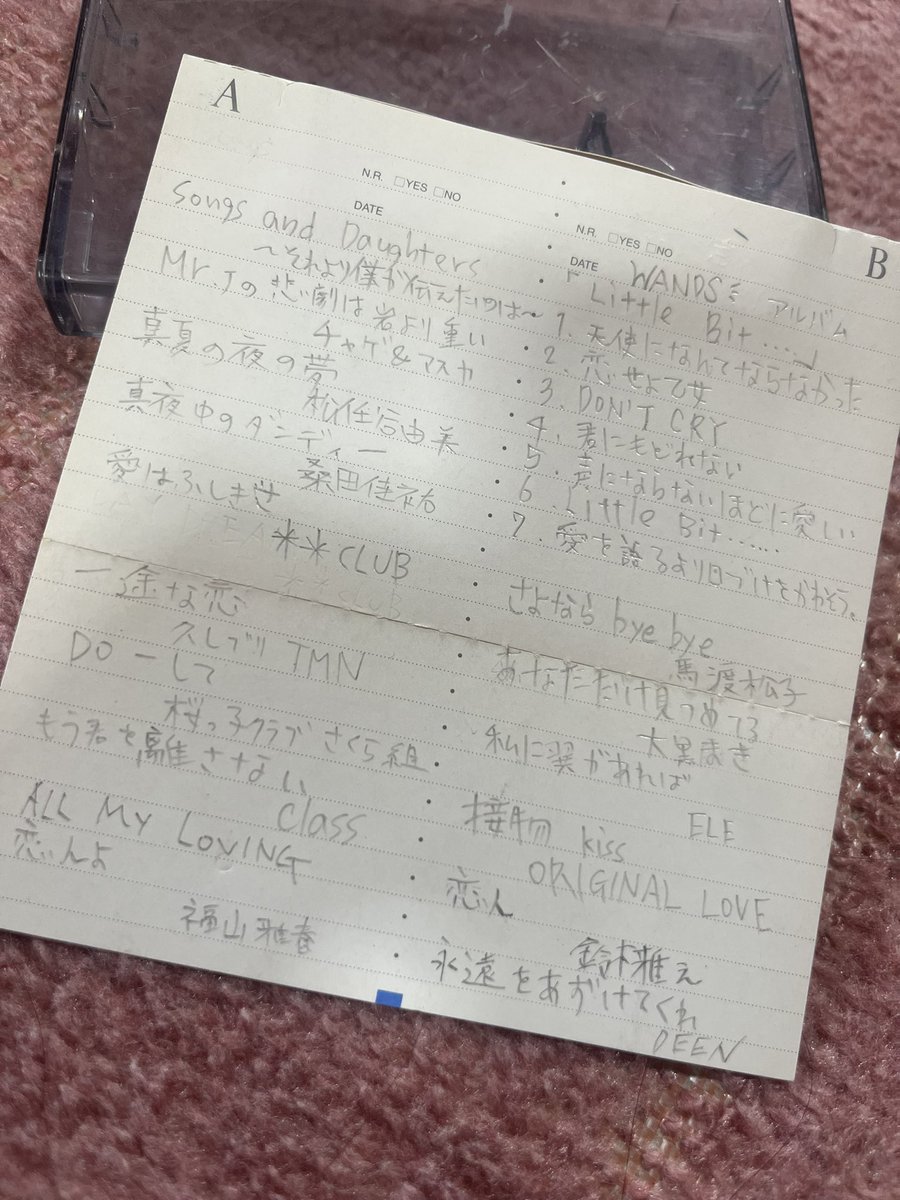 A
N.R. □YES □NO
DATE
Songs and Daughters
～それより僕が伝えたいのは～
Mr.Jの悲劇は岩より重い
チャゲ&アスカ
真夏の夜の夢
松任谷由美
真夜中のダンディー
桑田佳祐
愛はふしぎさ
**CLUB
**CLUB
一途な恋
久しブリ TMN
DOーして
桜っ子クラブさくら組
もう君を離さない
Class
ALL MY LOVING
恋人よ
福山雅春
B
N.R. □YES □NO
DATE
WANDSミアルバム
「Little Bit……」
1. 天使になんてなれなかった
2. 恋せよ乙女
3. DON'T CRY
4. にもどれない
5. 声にならないほどに愛しい
6 Little Bit……
7. 愛を語るより口づけをかわそう。
さよなら bye bye
馬渡松子
あなただけ見つめてる
大黒まき
私に翼があれば
ELE
接吻 kiss
ORIGINAL LOVE
恋人
鈴木雅え
永遠をあずけてくれ
DEEN